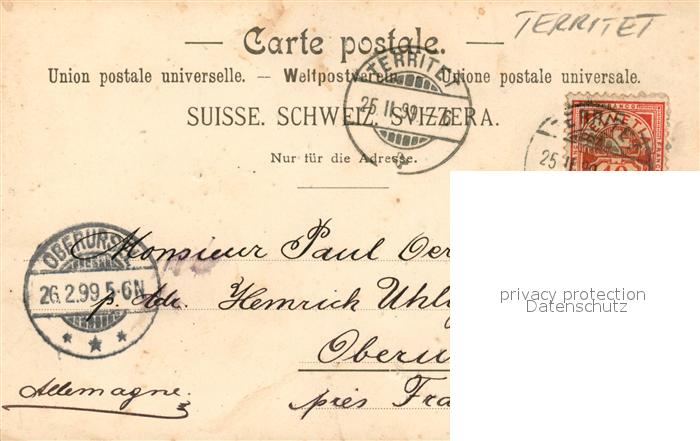 TERRITET
Carte postale.
Union postale universelle. — Weltpostverein. — Unione postale universale.
TERRITET
25 II 99
SUISSE. SCHWEIZ. SVIZZERA.
25 II
10
Nur für die Adresse.
Monsieur Paul Oer
OBERURS
26.2.99 5-6N
p. Adr. Heinrich Uhl
Oberu
Allemagne.
près Fra
privacy protection
Datenschutz